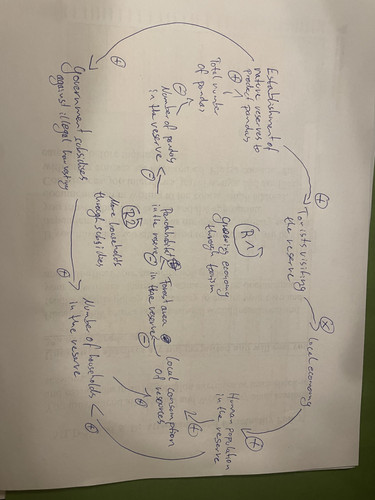 Establishment of
nature reserves to
protect pandas
+
Total number
of pandas
+
Number of pandas
in the reserve
+
Government subsidises
against illegal harvesting
+
Tourists visiting
the reserve
R1
Growing economy
through tourism
R2
More households
through subsidies
Panda habitat
in the reserve
Forest area
in the reserve
-
Local consumption
of resources
+
Local economy
Human population
in the reserve
+
+
Number of households
in the reserve
+
+